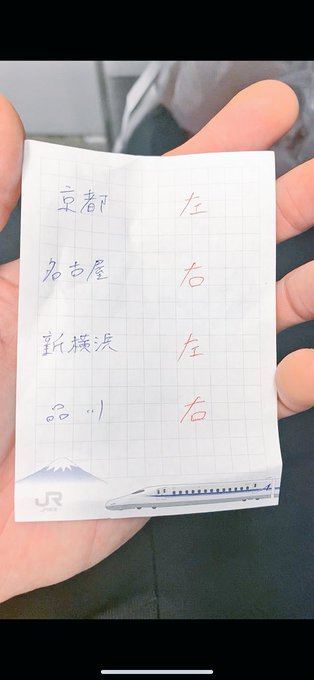 京都 左
名古屋 右
新横浜 左
品川 右
JR